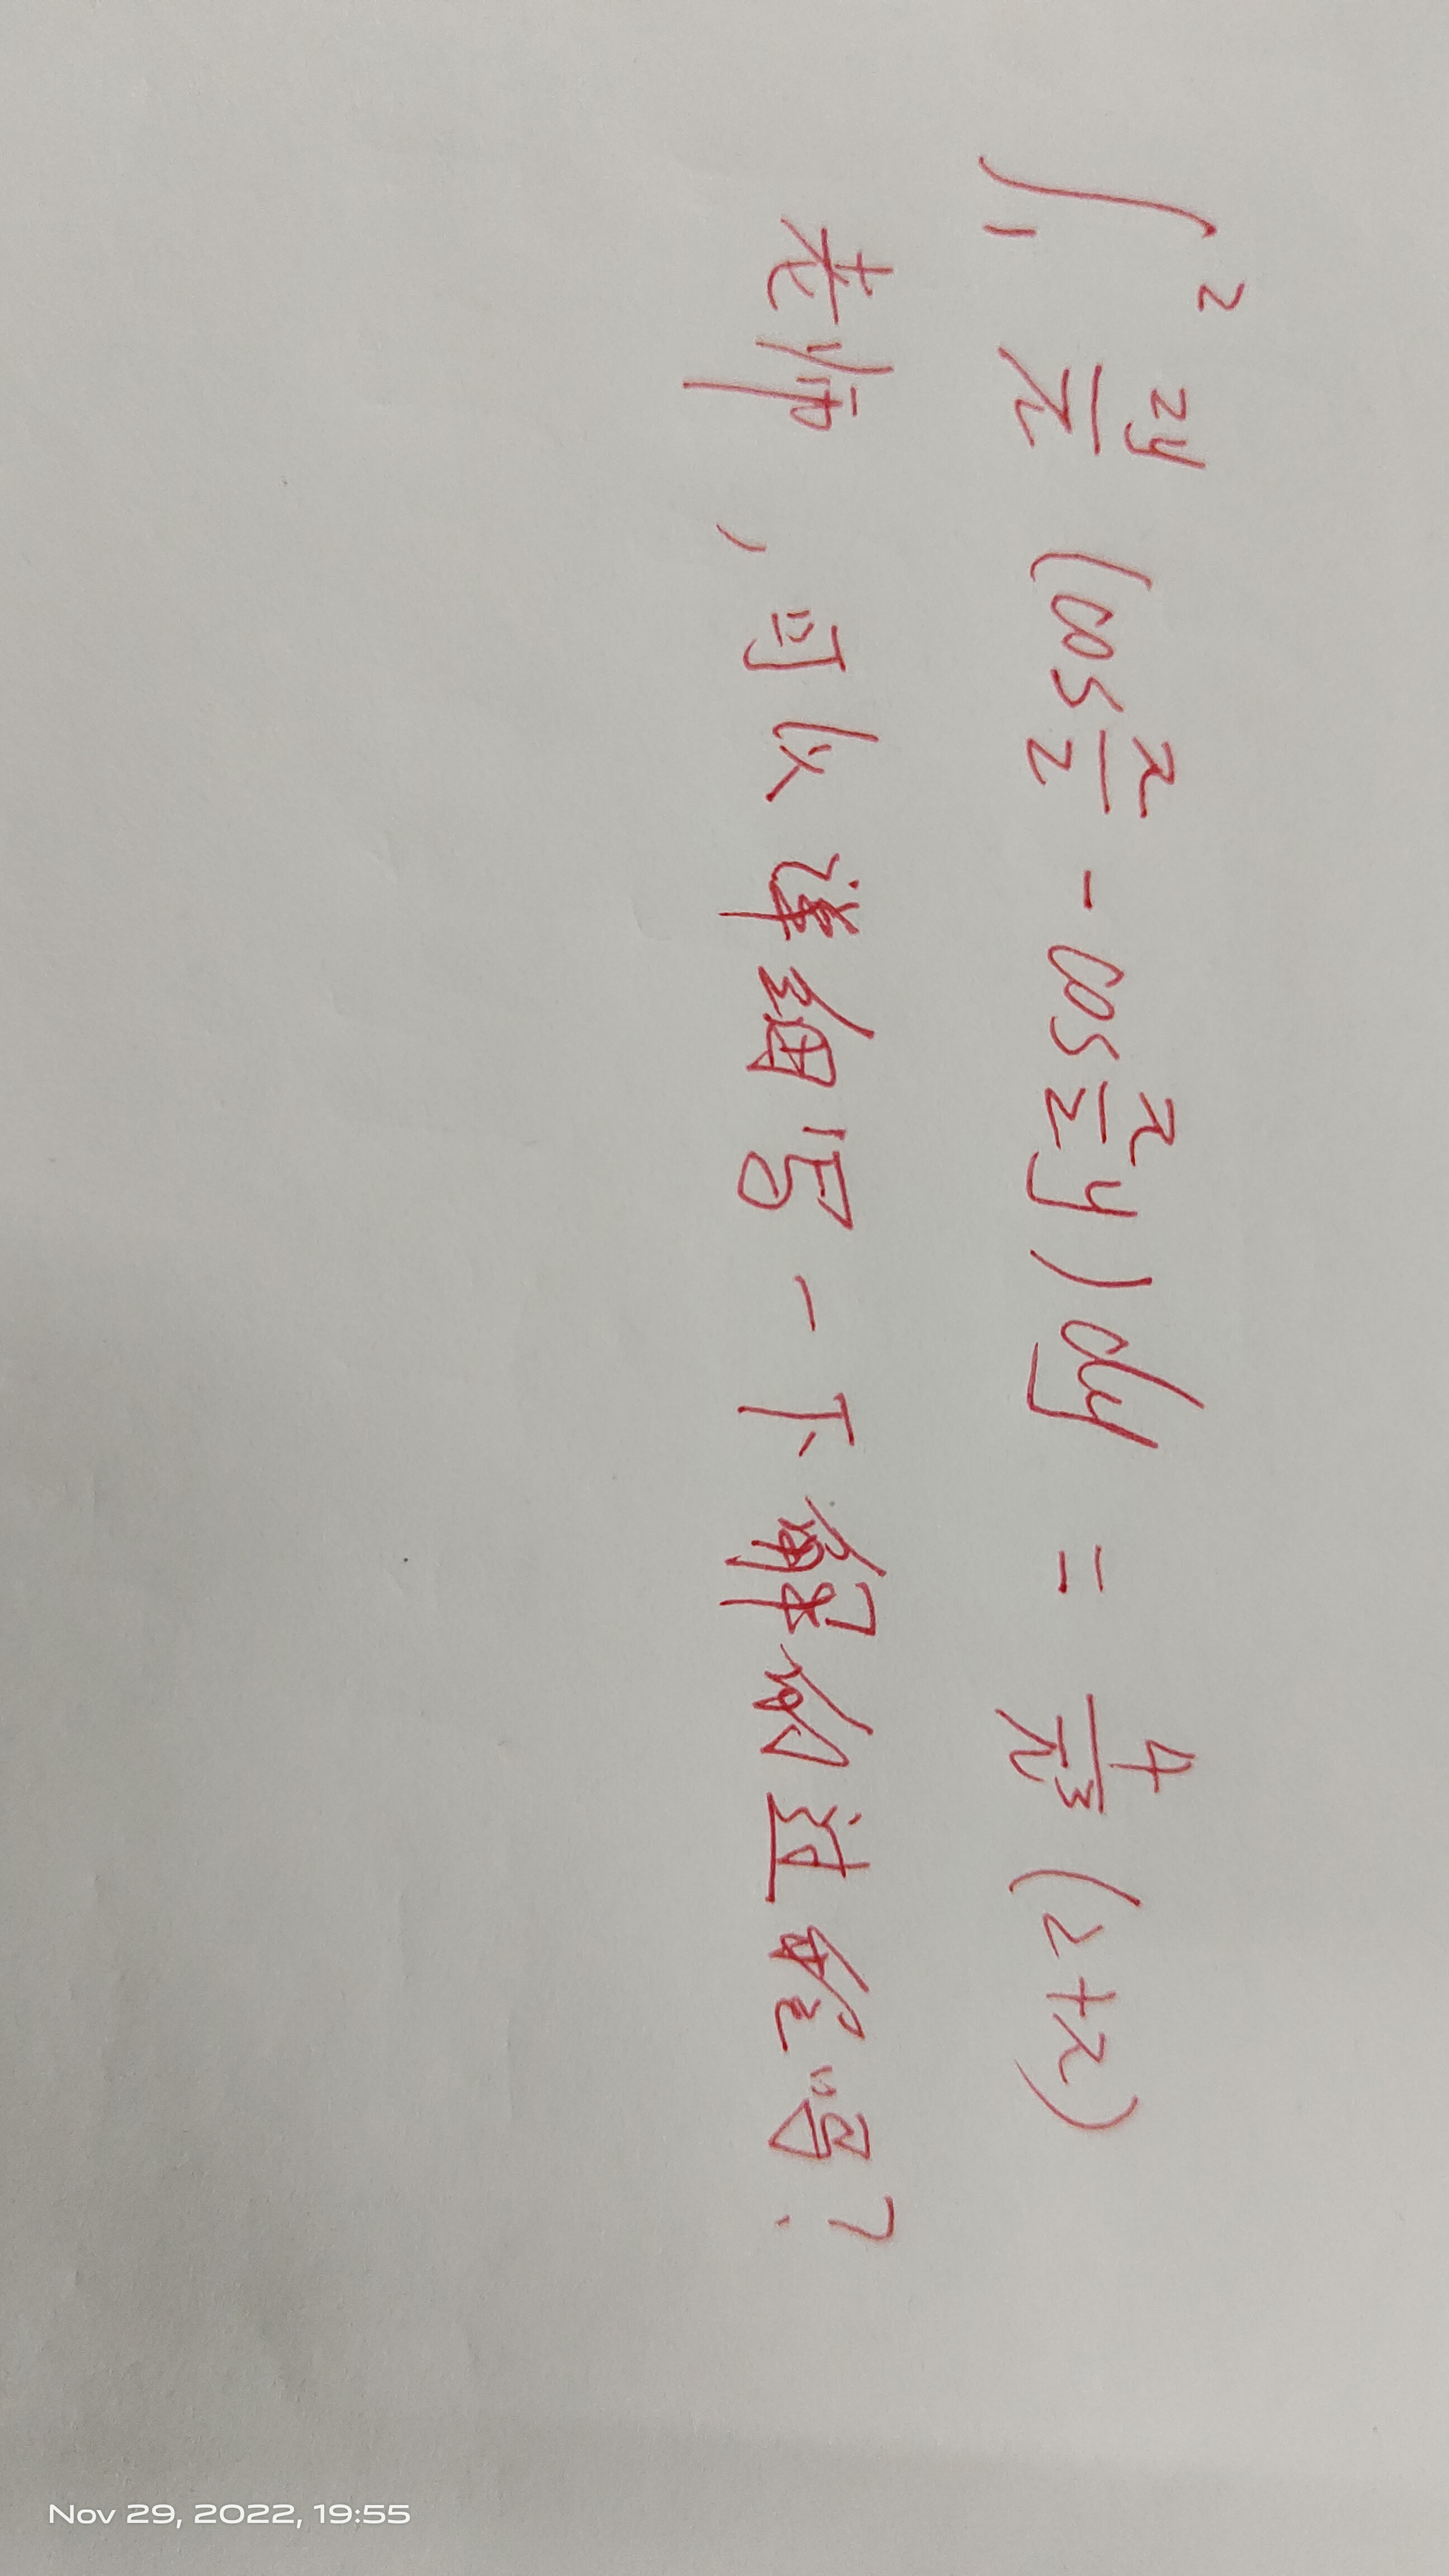 ∫₁² 2y/π (cos π/2 - cos π/2 y) dy = 4/π³ (2+π)
老师，可以详细写一下解的过程吗？
Nov 29, 2022, 19:55